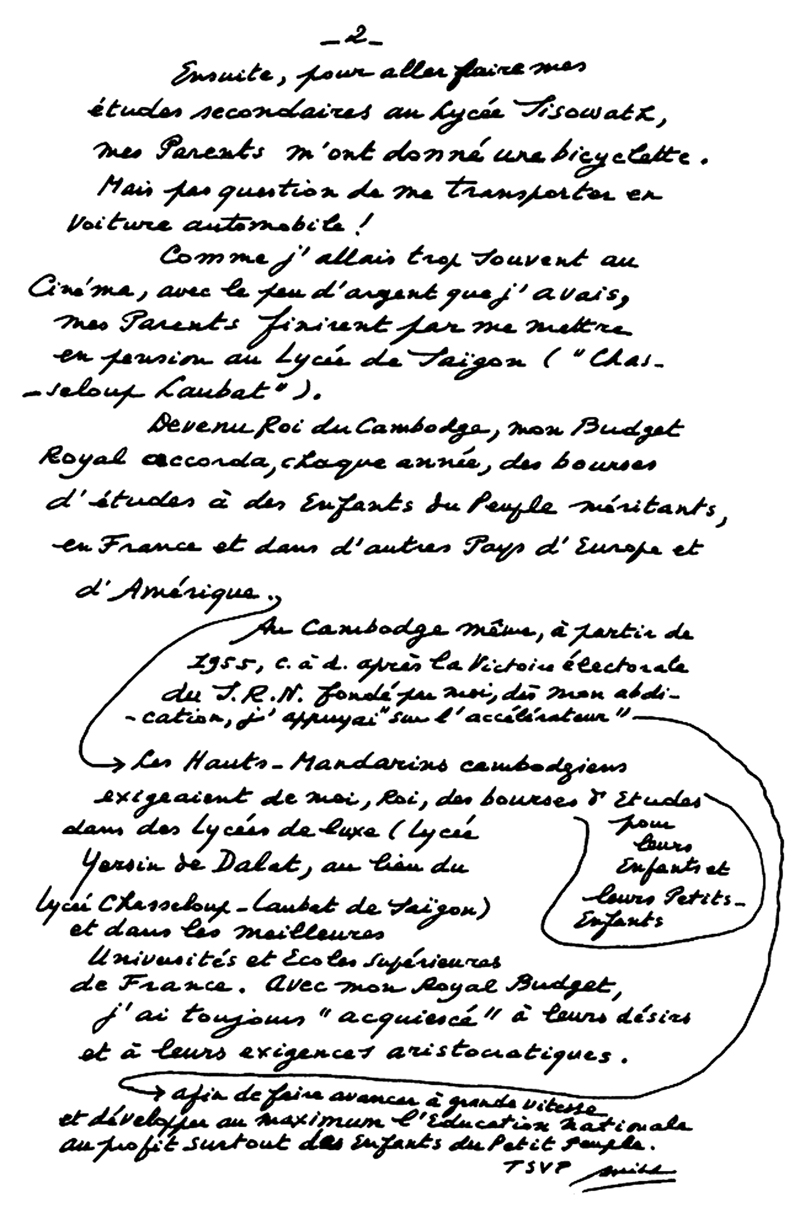 _2_
Ensuite, pour aller faire mes
études secondaires au Lycée Sisowath,
mes Parents m'ont donné une bicyclette.
Mais pas question de me transporter en
voiture automobile !
Comme j'allais trop souvent au
Cinéma, avec le peu d'argent que j'avais,
mes Parents finirent par me mettre
en pension au Lycée de Saïgon ("Chas-
-seloup Laubat").
Devenu Roi du Cambodge, mon Budget
Royal accorda, chaque année, des bourses
d'études à des Enfants du Peuple méritants,
en France et dans d'autres Pays d'Europe et
d'Amérique.
Au Cambodge même, à partir de
1955, c. à d. après la Victoire électorale
du S.R.N. fondé par moi, dès mon abdi-
-cation, j'appuyai "sur l'accélérateur"
→ Les Hauts-Mandarins cambodgiens
exigeaient de moi, Roi, des bourses d'Etudes
pour
leurs
Enfants et
leurs Petits-
Enfants
dans des Lycées de luxe (Lycée
Yersin de Dalat, au lieu du
Lycée Chasseloup-Laubat de Saïgon)
et dans les meilleures
Universités et Ecoles Supérieures
de France. Avec mon Royal Budget,
j'ai toujours "acquiescé" à leurs désirs
et à leurs exigences aristocratiques.
→ afin de faire avancer à grande vitesse
et développer au maximum l'Education Nationale
au profit surtout des Enfants du Petit Peuple.
TSVP